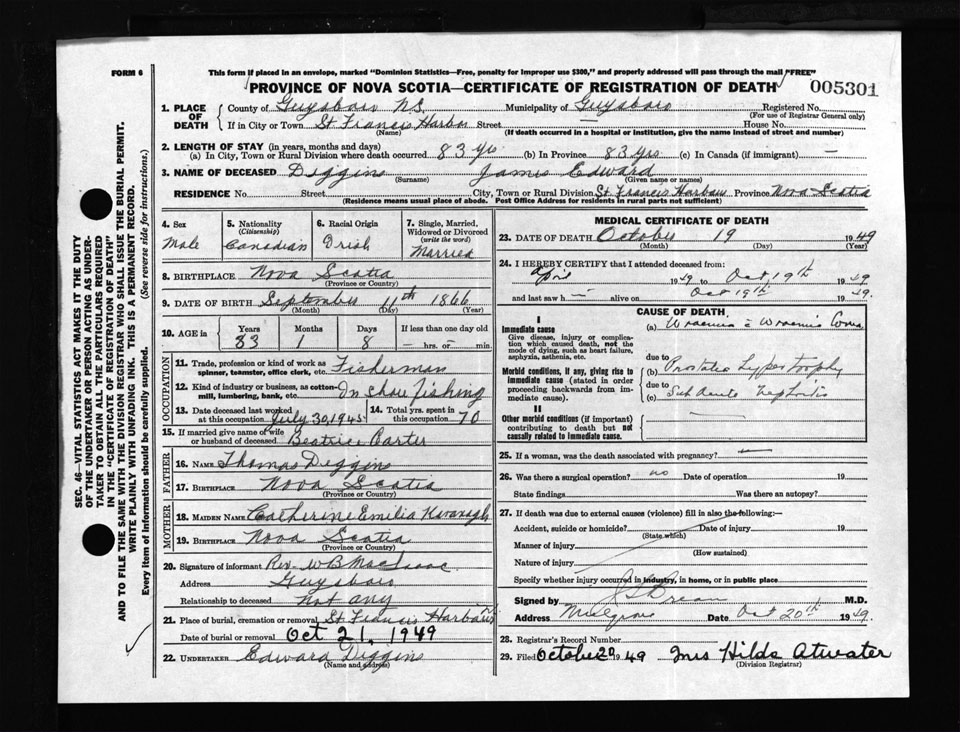 FORM 6
This form if placed in an envelope, marked "Dominion Statistics—Free, penalty for improper use $300," and properly addressed will pass through the mail "FREE"
PROVINCE OF NOVA SCOTIA—CERTIFICATE OF REGISTRATION OF DEATH
005301
1. PLACE OF DEATH
County of Guysboro N.S. Municipality of Guysboro Registered No.
(For use of Registrar General only)
If in City or Town St Francis Harbor Street — House No.
(Name) (If death occurred in a hospital or institution, give the name instead of street and number)
2. LENGTH OF STAY (in years, months and days)
(a) In City, Town or Rural Division where death occurred 83 yrs (b) In Province 83 yrs (c) In Canada (if immigrant) —
3. NAME OF DECEASED Diggins James Edward
(Surname) (Given name or names)
RESIDENCE No. Street City, Town or Rural Division St. Francis Harbour Province Nova Scotia
(Residence means usual place of abode. Post Office Address for residents in rural parts not sufficient)
4. Sex
Male
5. Nationality
(Citizenship)
Canadian
6. Racial Origin
Irish
7. Single, Married, Widowed or Divorced
(write the word)
Married
8. BIRTHPLACE Nova Scotia
(Province or Country)
9. DATE OF BIRTH September 11th 1866
(Month) (Day) (Year)
10. AGE in
Years Months Days If less than one day old
83 1 8 — hrs. or — min.
OCCUPATION
11. Trade, profession or kind of work as Fisherman
spinner, teamster, office clerk, etc.
12. Kind of industry or business, as cotton-
mill, lumbering, bank, etc. In shore fishing
13. Date deceased last worked
at this occupation July 30, 1945
14. Total yrs. spent in
this occupation 70
15. If married give name of wife
or husband of deceased Beatrice Carter
FATHER
16. NAME Thomas Diggins
17. BIRTHPLACE Nova Scotia
(Province or Country)
MOTHER
18. MAIDEN NAME Catherine Emilia Kavanagh
19. BIRTHPLACE Nova Scotia
(Province or Country)
20. Signature of informant Rev. W B MacIsaac
Address Guysboro
Relationship to deceased Not any
21. Place of burial, cremation or removal St Francis Harbour
Date of burial or removal Oct 21, 1949
22. UNDERTAKER Edward Diggins
(Name and address)
MEDICAL CERTIFICATE OF DEATH
23. DATE OF DEATH October 19 1949
(Month) (Day) (Year)
24. I HEREBY CERTIFY that I attended deceased from:
April 1949 to Oct 19th 1949
and last saw h— alive on Oct 19th 1949.
CAUSE OF DEATH
I
Immediate cause
Give disease, injury or complication which caused death, not the mode of dying, such as heart failure, asphyxia, asthenia, etc.
(a) Uraemia Uraemic Coma
due to
Morbid conditions, if any, giving rise to immediate cause (stated in order proceeding backwards from immediate cause).
(b) Prostatic Hypertrophy
due to
(c) Sub Acute Nephritis
II
Other morbid conditions (if important) contributing to death but not causally related to immediate cause.
25. If a woman, was the death associated with pregnancy? —
26. Was there a surgical operation? no Date of operation 19
State findings Was there an autopsy?
27. If death was due to external causes (violence) fill in also the following:—
Accident, suicide or homicide? Date of injury 19
(State which)
Manner of injury
(How sustained)
Nature of injury
Specify whether injury occurred in industry, in home, or in public place
Signed by M.D.
Address Mulgrave Date Oct 20th 1949
28. Registrar's Record Number
29. Filed October 20 1949 Mrs Hilda Atwater
(Division Registrar)
SEC. 46—VITAL STATISTICS ACT MAKES IT THE DUTY
OF THE UNDERTAKER OR PERSON ACTING AS UNDER-
TAKER TO OBTAIN ALL THE PARTICULARS REQUIRED
IN THE "CERTIFICATE OF REGISTRATION OF DEATH"
AND TO FILE THE SAME WITH THE DIVISION REGISTRAR WHO SHALL ISSUE THE BURIAL PERMIT.
WRITE PLAINLY WITH UNFADING INK. THIS IS A PERMANENT RECORD.
Every item of information should be carefully supplied. (See reverse side for instructions.)